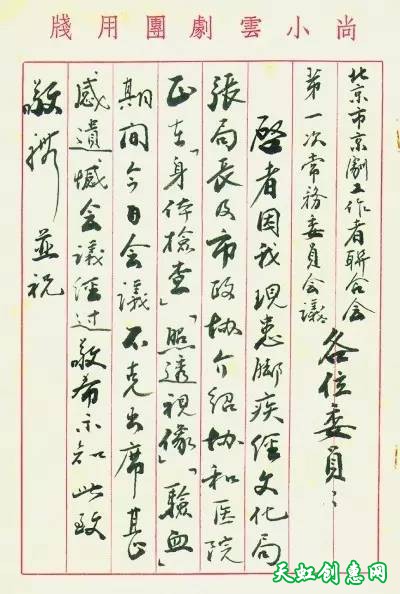 尚小雲劇團用牋
北京市京劇工作者聯合会
第一次常務委員会議
各位委員：
啓者因我現患脚疾经文化局
張局長及市政协介紹协和医院
正在「身体檢查」「照透視像」「驗血」
期间今日会議不克出席甚
感遺憾会議经过敬希示知此致
敬禮 並祝
天虹创意网